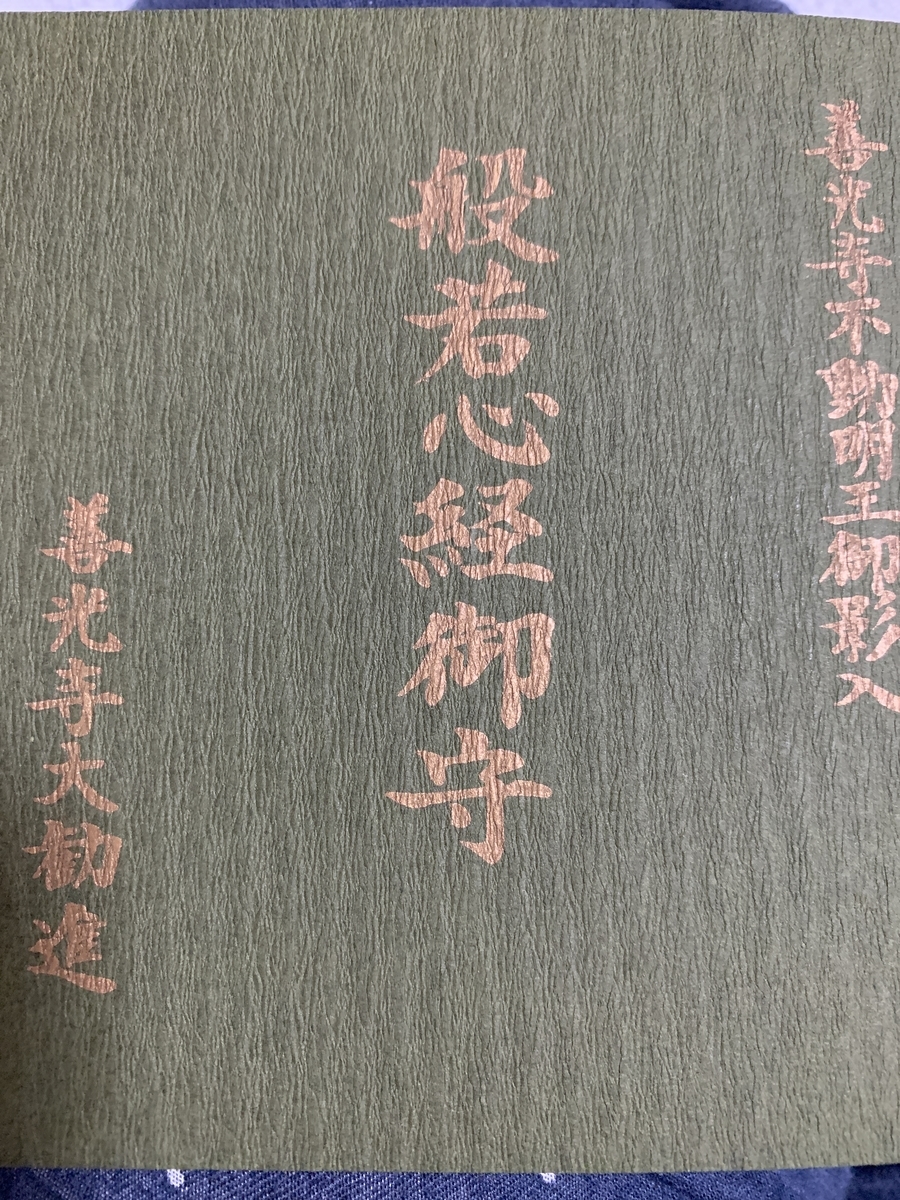 善光寺不動明王御影入
般若心経御守
善光寺大勧進